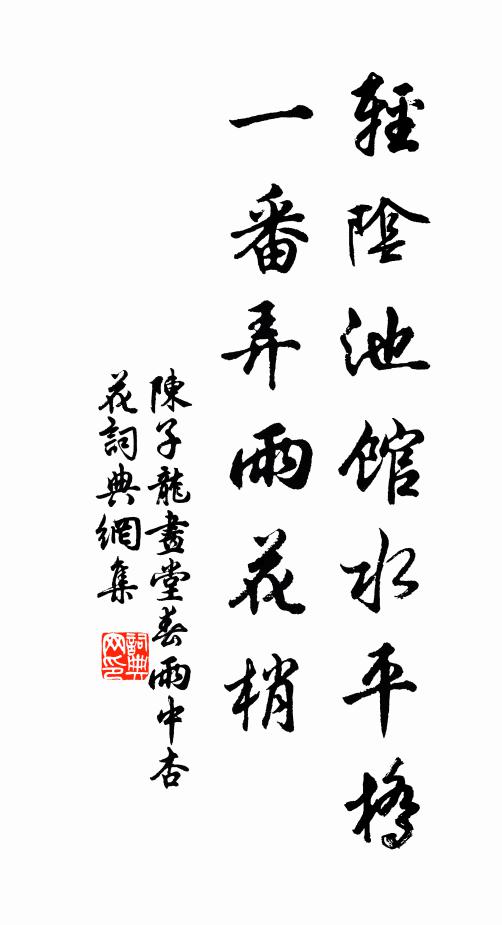 輕陰池館水平橋
一番弄雨花梢
陳子龍畫堂春雨中杏
花詞典網集
詞典
网印